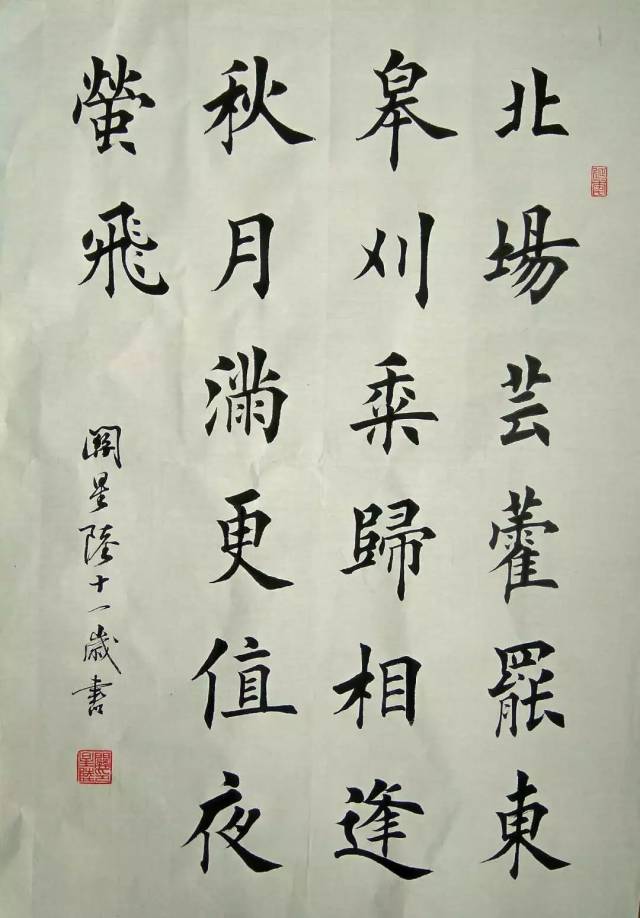 北場芸藿罷東
皋刈黍歸相逢
秋月滿更值夜
螢飛
關星陸十一歲書